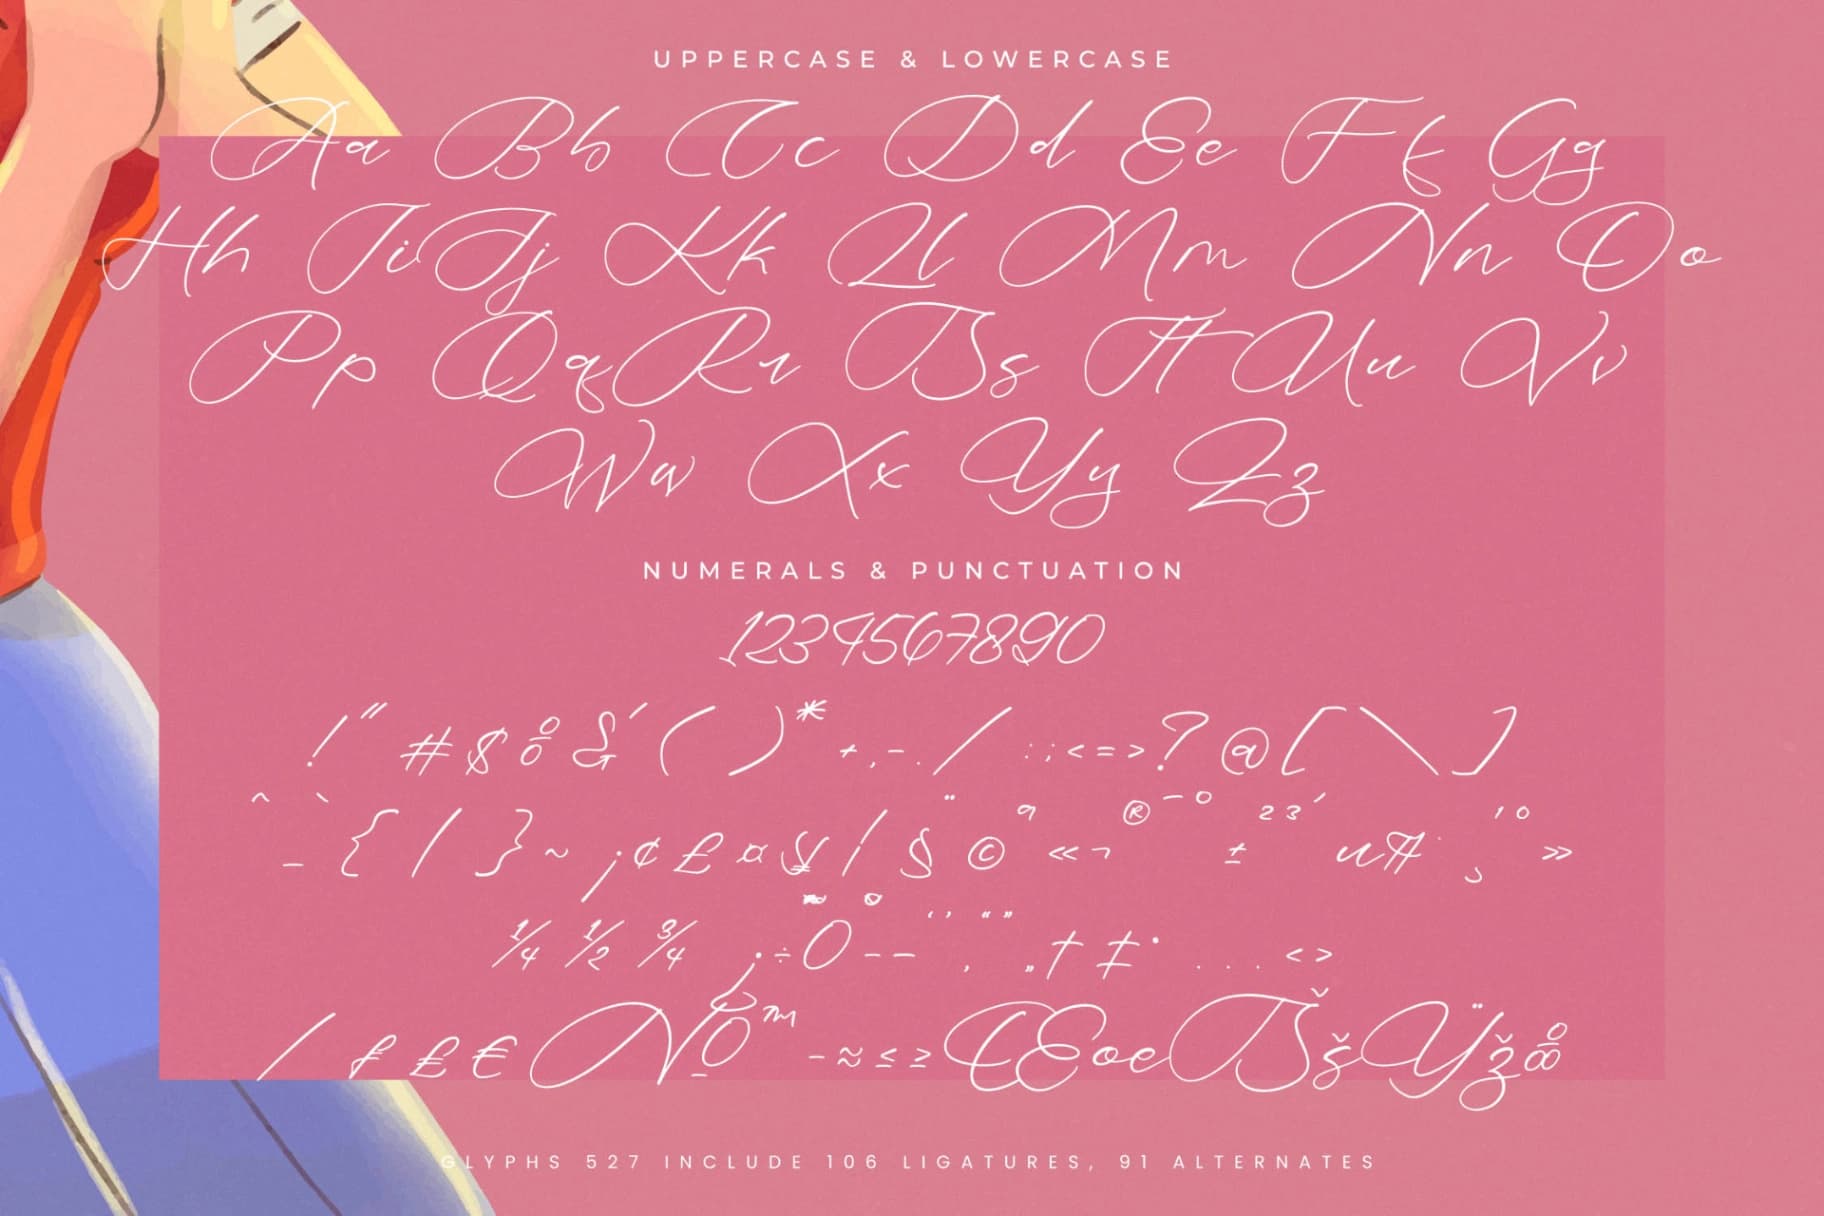 UPPERCASE & LOWERCASE
Aa Bb Cc Dd Ee Ff Gg
Hh Ii Jj Kk Ll Mm Nn Oo
Pp Qq Rr Ss Tt Uu Vv
Ww Xx Yy Zz
NUMERALS & PUNCTUATION
1234567890
! " # $ % & ' ( ) * + , - . / : ; < = > ? @ [ \ ]
^ _ ` { | } ~ ¡ ¢ £ ¤ ¥ ¦ § ¨ © ª « ¬ ® ¯ ° ± ² ³ ´ µ ¶ · ¸ ¹ º »
¼ ½ ¾ ¿ ÷ 0 – — ‘ ’ ‚ “ ” „ † ‡ • … ‹ ›
⁄ ₤ € № ™ − ≈ ≤ ≥ Œ œ Š š Ÿ ž ‰
GLYPHS 527 INCLUDE 106 LIGATURES, 91 ALTERNATES